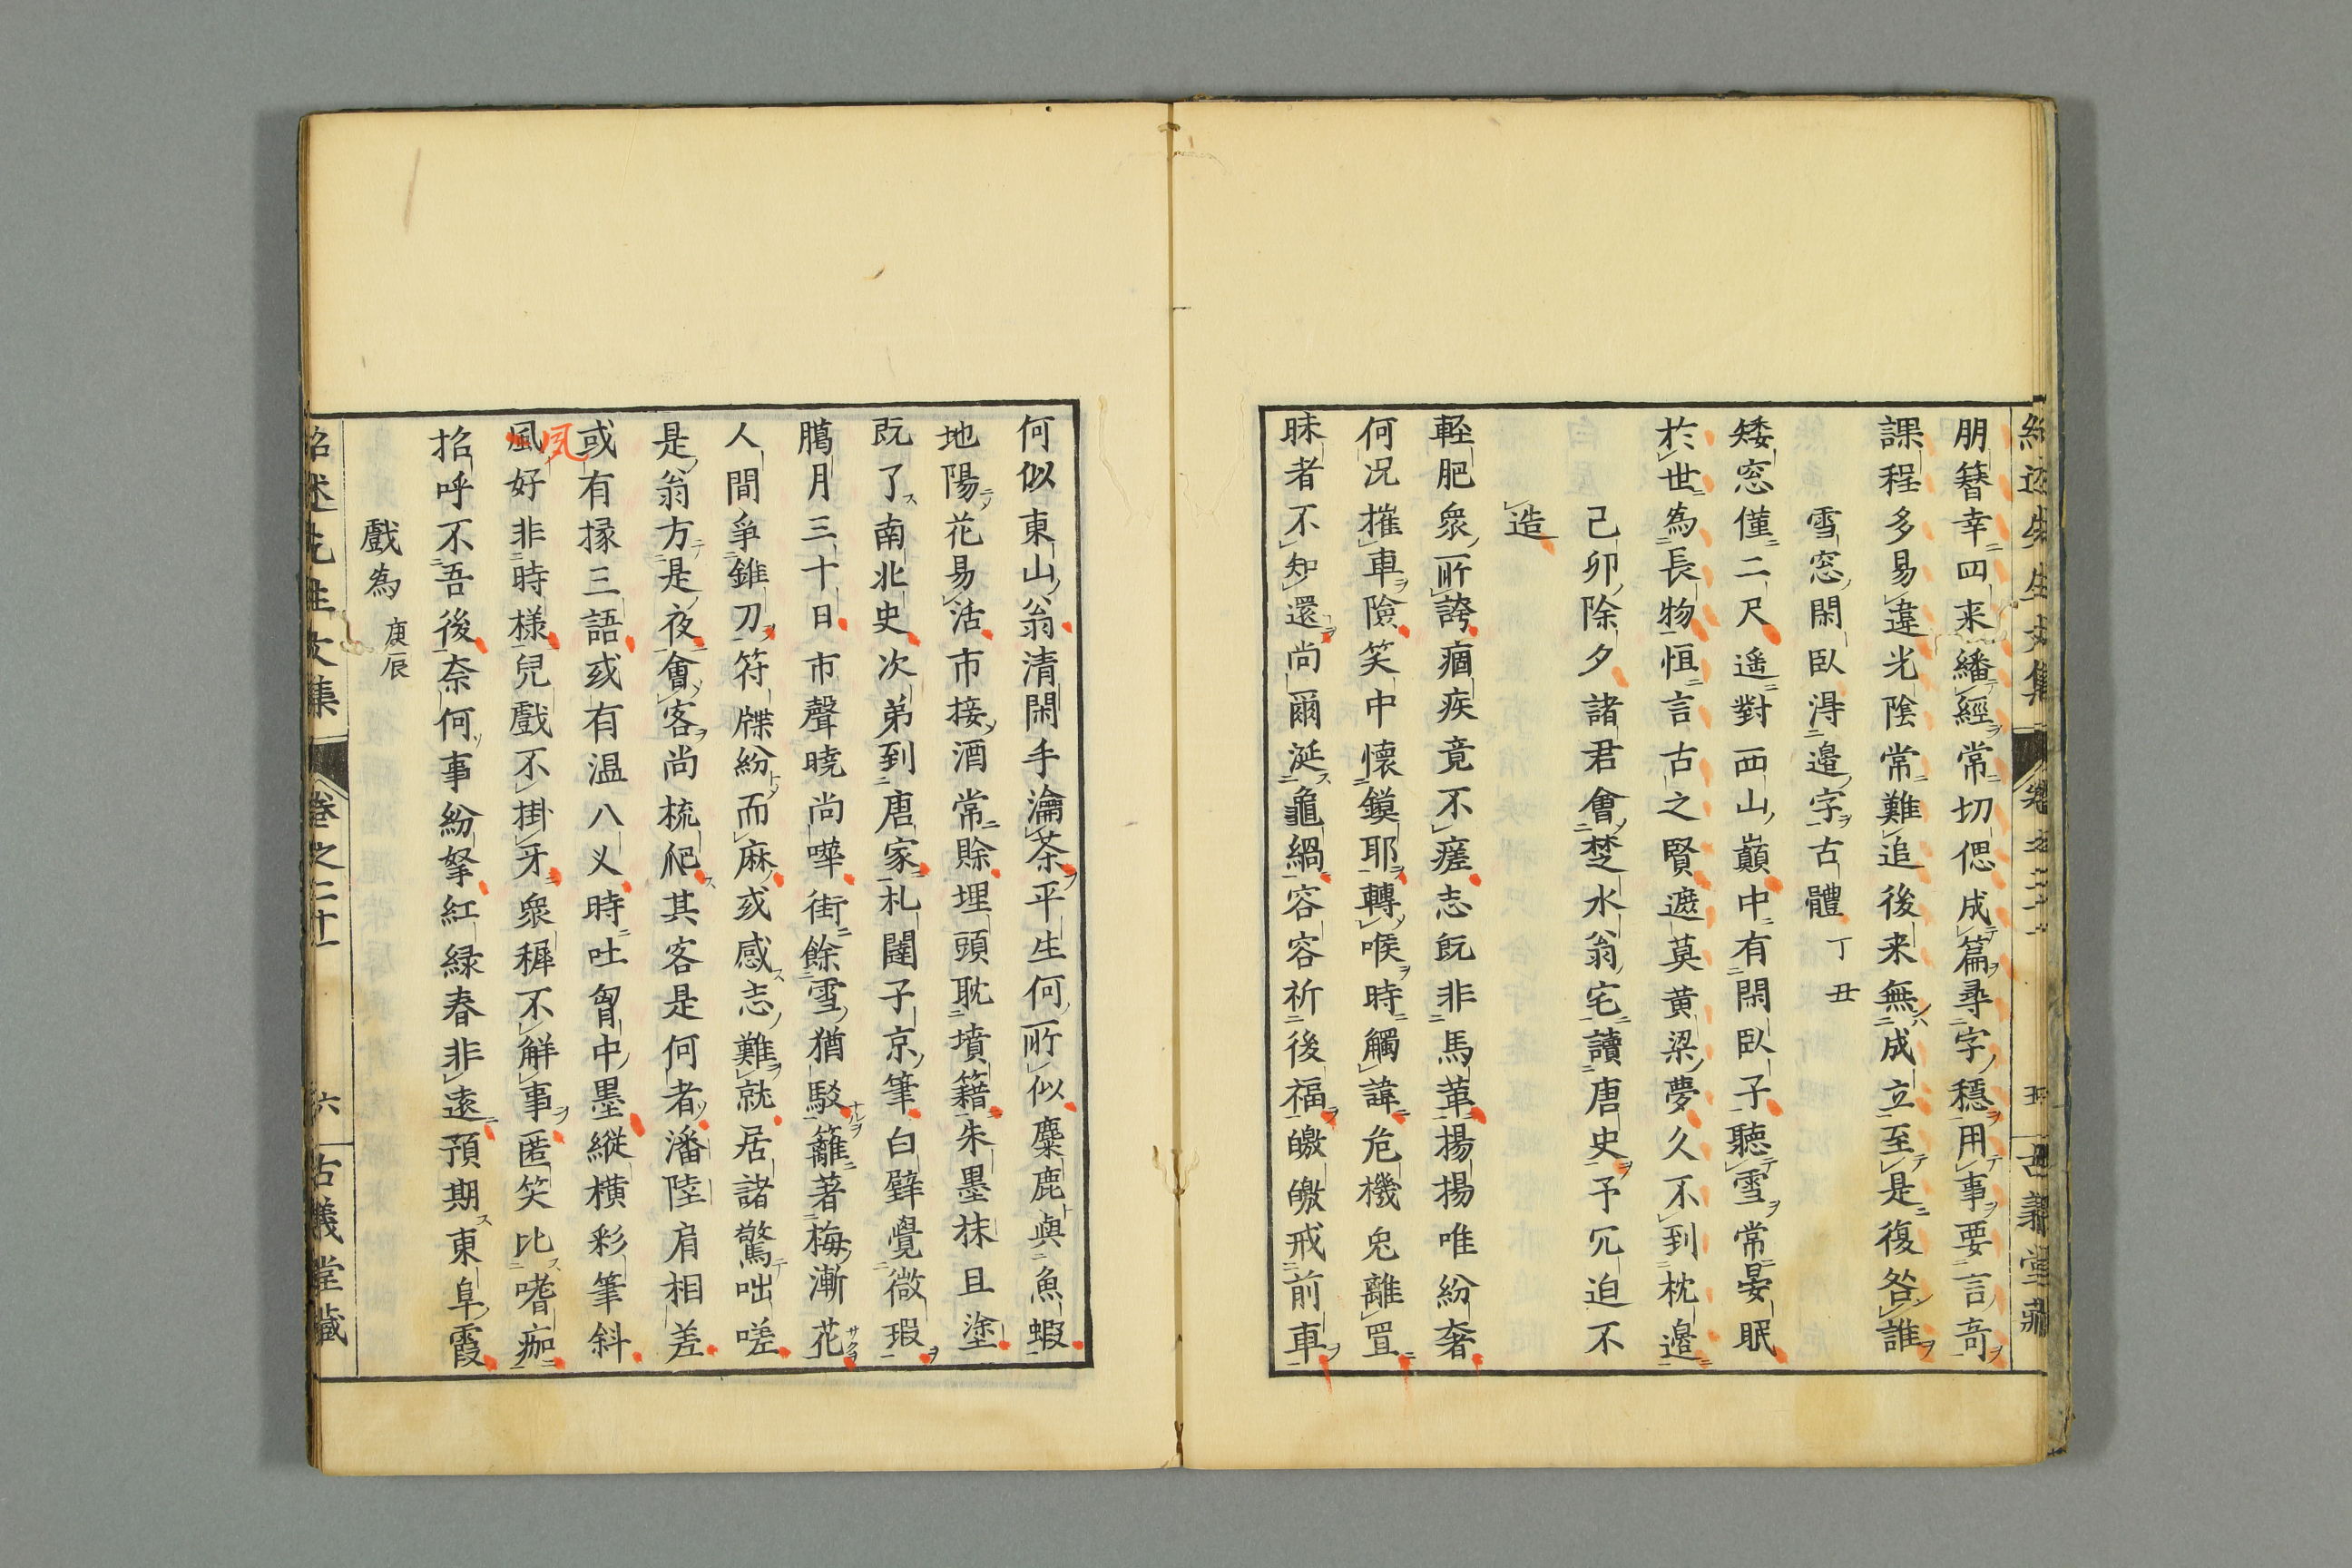 紹述先生文集 卷之二十一 五 古義堂藏
朋簪幸四来繙經常切偲成篇尋字穩用事要言奇
課程多易違光陰常難追後来無成立至是復咎誰
雪窓閑臥淂邉字古體 丁丑
矮窓僅二尺遥對西山巔中有閑臥子聴雪常晏眠
於世為長物恒言古之賢遮莫黄粱夢久不到枕邉
己卯除夕諸君會楚水翁宅讀唐史予冗迫不
造
輕肥衆所誇痼疾竟不瘥志既非馬革揚揚唯紛奢
何况摧車險笑中懷鏌耶轉喉時觸諱危機兔離罝
昧者不知還尚爾涎龜緺容容祈後福皦皦戒前車
何似東山翁清閑手瀹茶平生何所似麋鹿與魚蝦
地陽花易活市接酒常賒埋頭耽墳籍朱墨抹且塗
既了南北史次弟到唐家札闥子京筆白璧覺微瑕
臈月三十日市聲曉尚嘩街餘雪猶駁籬著梅漸花
人間爭錐刀符牒紛而麻或感志難就居諸驚咄嗟
是翁方是夜會客尚梳爬其客是何者潘陸肩相差
或有掾三語或有温八乂時吐胷中墨縱横彩筆斜
夙
風好非時様兒戲不掛牙衆穉不解事匿笑比嗜痂
招呼不吾後奈何事紛拏紅緑春非遠預期東阜霞
戲為 庚辰
紹述先生文集 卷之二十一 六 古義堂藏